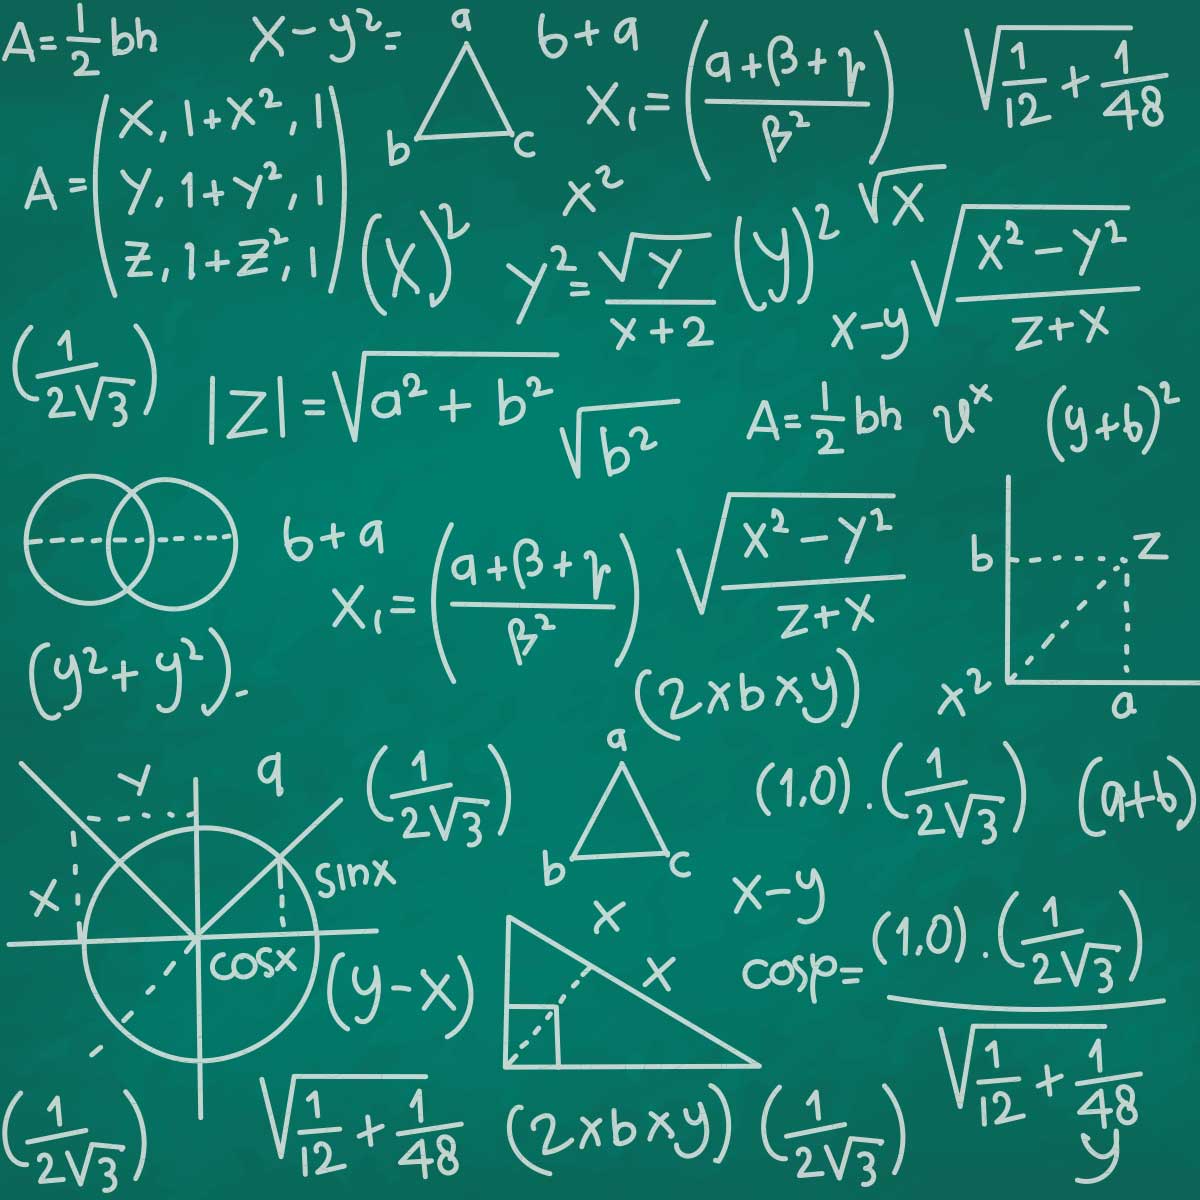 A = 1/2 bh
x - y² =
a
b
c
b + a
x₁ = ( (a + β + γ) / β² )
√(1/12 + 1/48)
A = ( x, 1 + x², 1
y, 1 + y², 1
z, 1 + z², 1 )
x²
√x
(x)²
y² = √y / (x + 2)
(y)²
√( (x² - y²) / (z + x) )
x - y
( 1 / 2√3 )
|z| = √(a² + b²)
√b²
A = 1/2 bh
vˣ
(y + b)²
b + a
x₁ = ( (a + β + γ) / β² )
√( (x² - y²) / (z + x) )
b
z
x²
a
(y² + y²).
(2 x b x y)
y
q
x
sinx
cosx
( 1 / 2√3 )
a
b
c
(1,0) . ( 1 / 2√3 )
(a + b)
x - y
x
x
(y - x)
cosp = (1,0) . ( 1 / 2√3 ) / √(1/12 + 1/48)
y
( 1 / 2√3 )
√(1/12 + 1/48)
(2 x b x y)
( 1 / 2√3 )